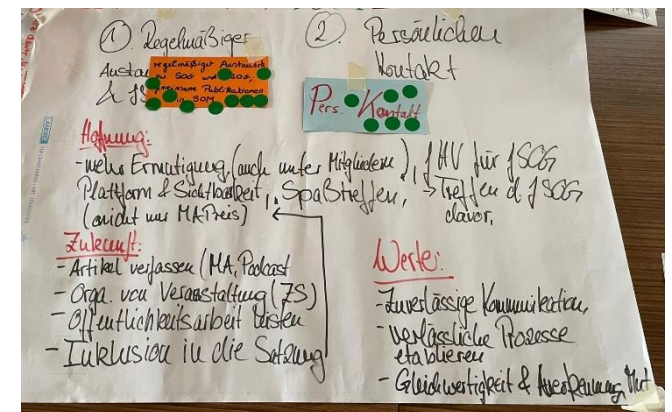 ① Regelmäßiger
Austau
& JS
regelmäßiger Austausch
SOG und SOG,
gemeinsame Publikationen
in SOM
② Persönlichen
Kontakt
Pers. Kontakt
Hoffnung:
- mehr Ermutigung (auch unter Mitgliedern),
Plattform & Sichtbarkeit, Spaßtreffen,
(nicht nur MA Preis)
JHV für JSOG
→ Treffen d. JSOG
davor,
Zukunft:
- Artikel verfassen (MA, Podcast
- Orga. von Veranstaltung (ZS)
- Öffentlichkeitsarbeit leisten
- Inklusion in die Satzung
Werte:
- Zuverlässige Kommunikation,
- verlässliche Prozesse
etablieren
- Gleichwertigkeit & Anerkennung, Mut